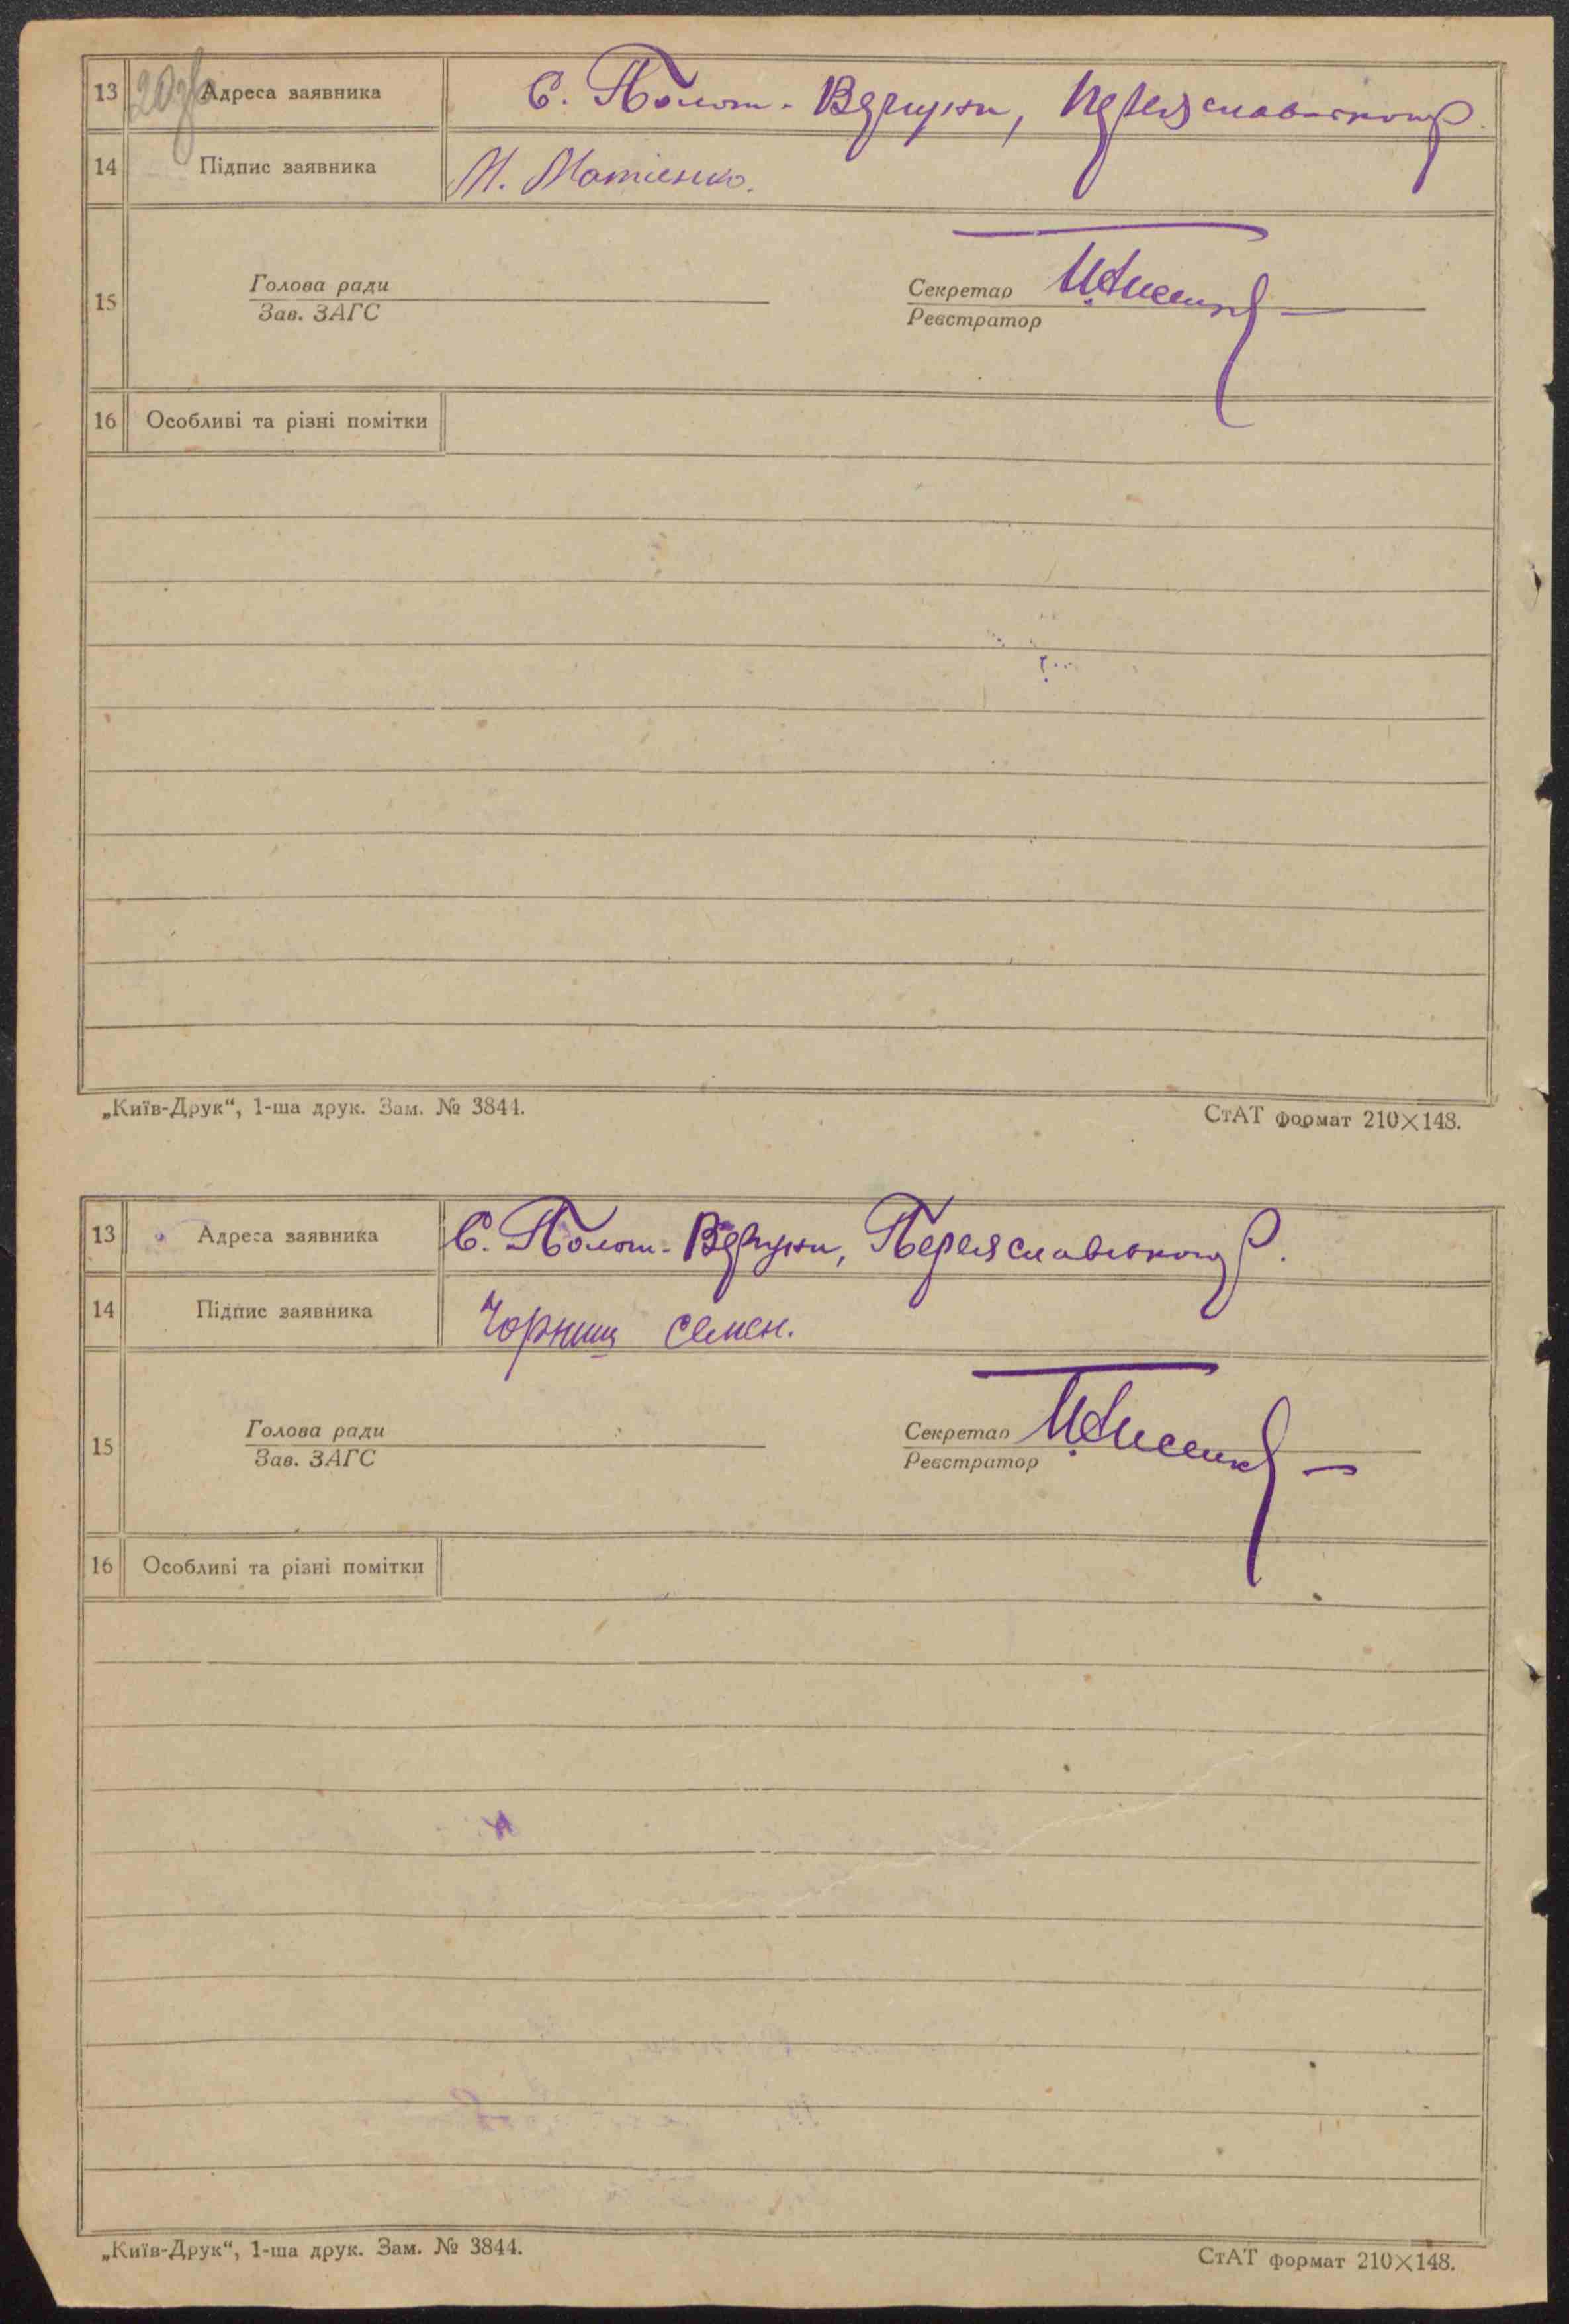 13 Адреса заявника С. Полот.-Вергуни, Переяславського р.
14 Підпис заявника М. Матієнко.
15 Голова ради
Зав. ЗАГС
Секретар
Реєстратор
16 Особливі та різні помітки
„Київ-Друк“, 1-ша друк. Зам. № 3844.
СтАТ формат 210×148.
13 Адреса заявника С. Полот.-Вергуни, Переяславського р.
14 Підпис заявника Чорниш Семен.
15 Голова ради
Зав. ЗАГС
Секретар
Реєстратор
16 Особливі та різні помітки
„Київ-Друк“, 1-ша друк. Зам. № 3844.
СтАТ формат 210×148.